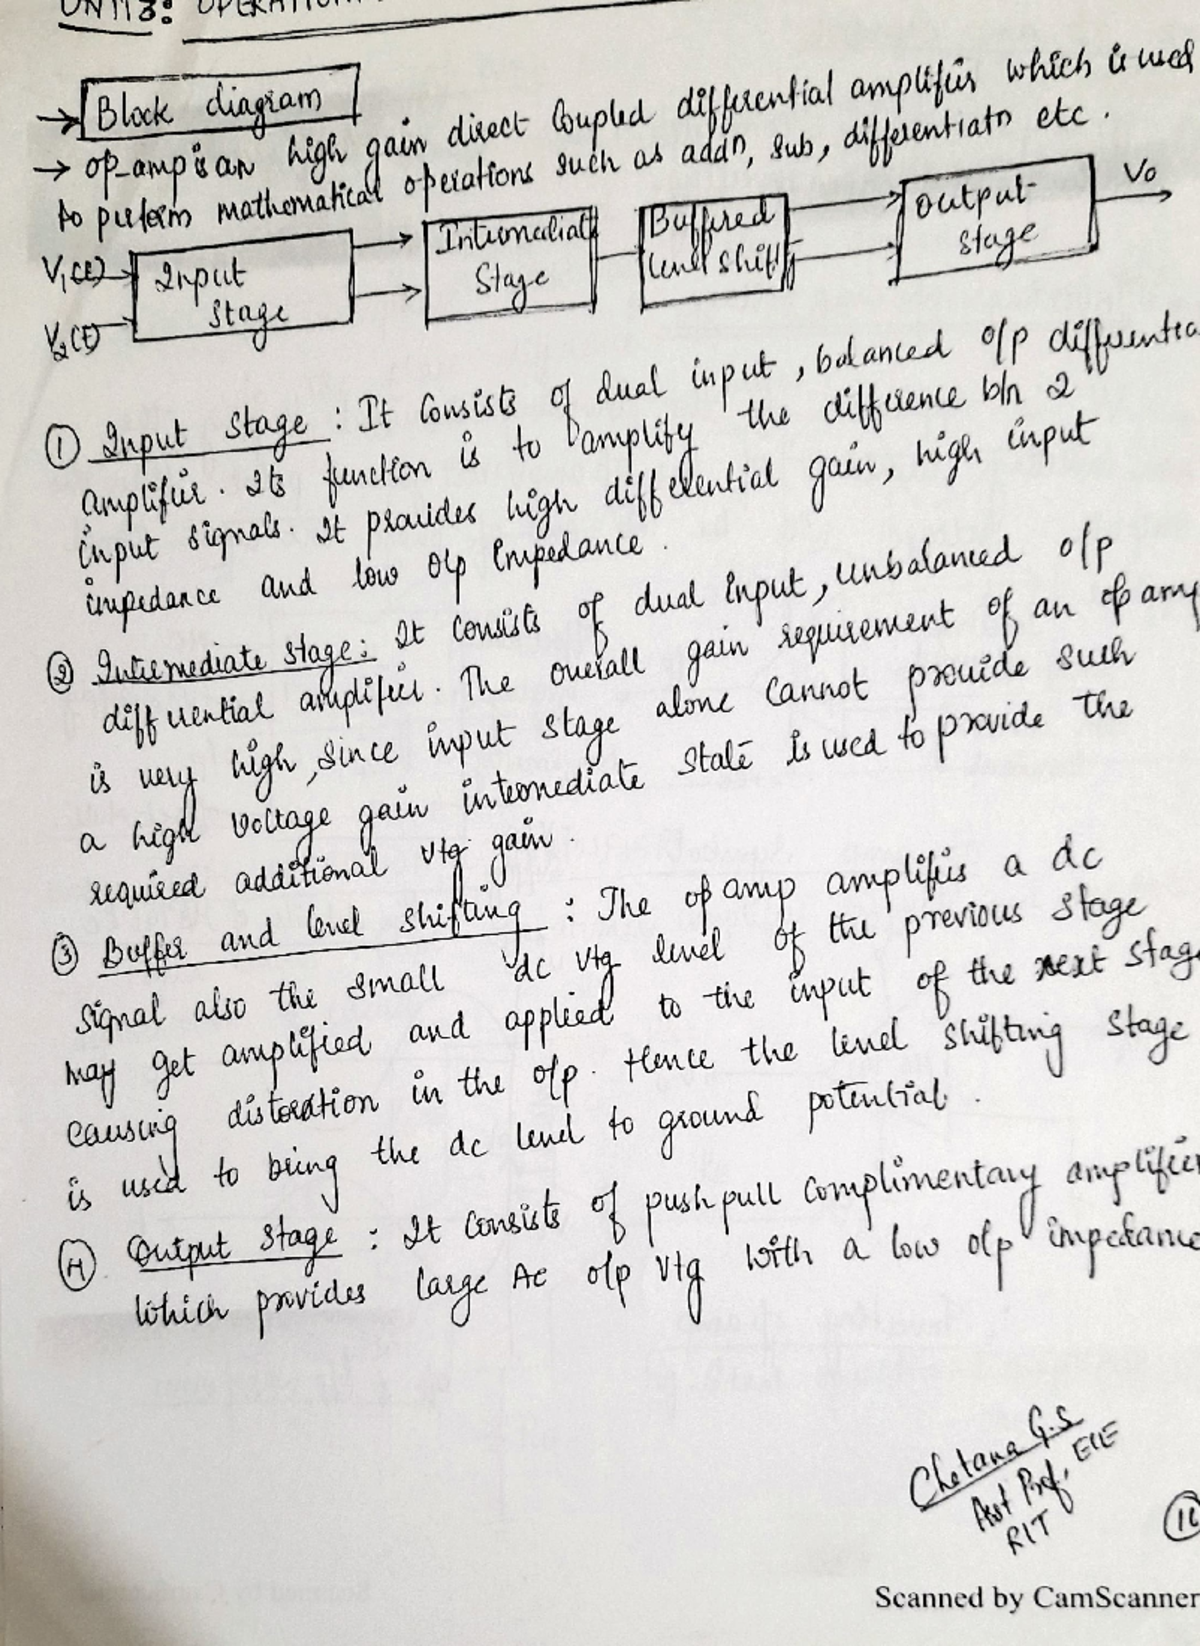 UNIT 3:
Block diagram
→ op-amp is an high gain direct Coupled differential amplifier which is used
to perform mathematical operations such as addn, sub, differentiatn etc.
V1(t)
V2(t)
Input
Stage
Intermediate
Stage
Buffered
level shift
Output
Stage
Vo
① Input Stage : It Consists of dual input, balanced o/p differentia
Amplifier. Its function is to amplify the difference b/n 2
input signals. It provides high differential gain, high input
impedance and low o/p Impedance.
② Intermediate stage: It consists of dual Input, unbalanced o/p
differential amplifier. The overall gain requirement of an op amp
is very high, since input stage alone cannot provide such
a high voltage gain intermediate state is used to provide the
required additional vtg gain.
③ Buffer and level shifting : The op amp amplifies a dc
signal also the small dc vtg level of the previous stage
may get amplified and applied to the input of the next stage
causing distortion in the o/p. Hence the level shifting stage
is used to bring the dc level to ground potential.
④ Output stage : It consists of push pull complimentary amplifier
which provides large Ac o/p vtg with a low o/p impedance
Chetana G.S
Asst Prof, ECE
RIT
Scanned by CamScanner